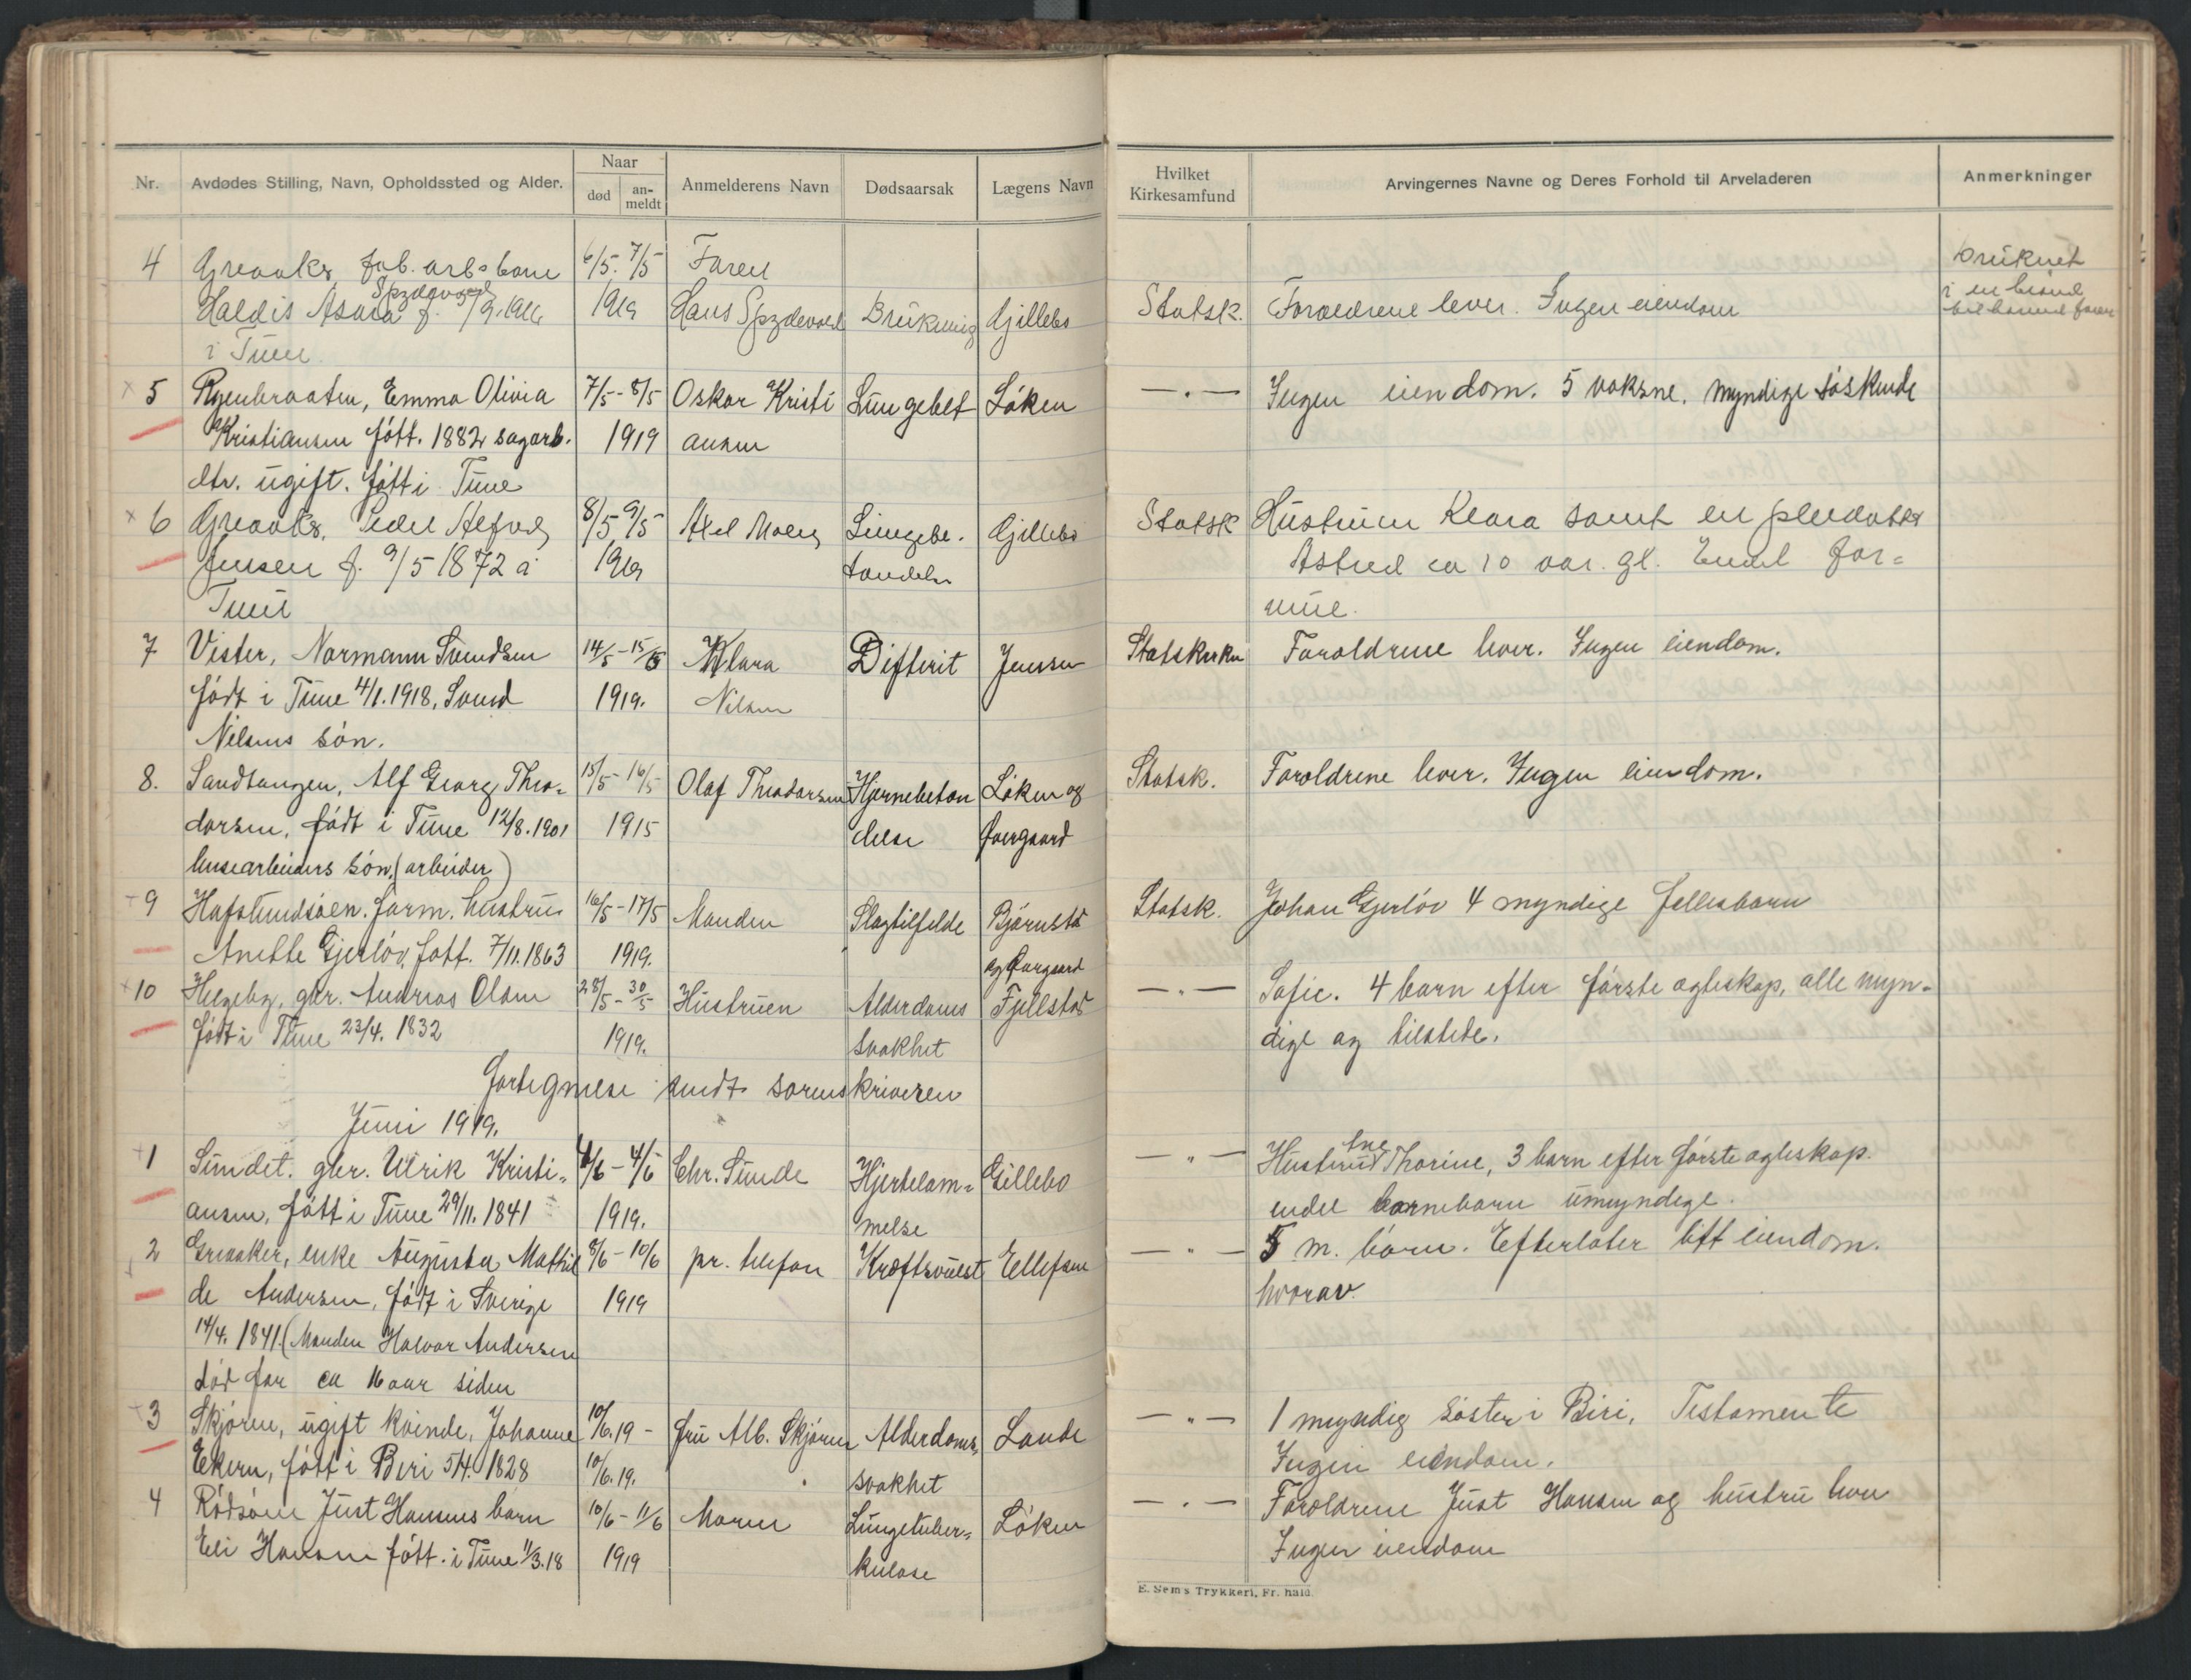 Nr.
Avdødes Stilling, Navn, Opholdssted og Alder.
Naar
død
an-
meldt
Anmelderens Navn
Dødsaarsak
Lægens Navn
Hvilket
Kirkesamfund
Arvingernes Navne og Deres Forhold til Arveladeren
Anmerkninger
4 Greaaker, fab. arb. barn 6/5. 7/5 Faren bruknet
Haldis f. 1919 Hans Brukning Gillebo Statsk. Foræeldrene lever. Ingen eiendom i en
i Tune
5 Ryenbraaten, Emma Olivia 7/5 - 8/5 Oskar Kristi Lungebet Løken — . — Ingen eiendom. 5 voksne. myndige søskende
Kristiansen født. 1882 sagarb. 1919 ansen
dtr. ugift. født i Tune
6 Greaaker, Peder Alfred 8/5 9/5 Axel Lungebe. Gillebo Statsk Hustruen Klara samt en pleiedatter
Jensen f. 9/5 1872 i 1919 tændelse Astrid ca 10 aar. gl. Endel for=
Tune mue.
7 Vister, Normann Svendsen 14/5 - 15/5 Klara Difterit Jenssen Statskirken Foraldrene lever. Ingen eiendom.
født i Tune 4/1. 1918, Svend 1919. Nilsen
Nilsens søn.
8. Sandtangen, Alf Georg Theo= 15/5 - 16/5 Olaf Theodorsen Hjernebetæn Løken og Statsk. Foraldrene lever. Ingen eiendom.
dorsen, født i Tune 12/8. 1901 1915 delse Overgaard
lensearbeiders søn, (arbeider)
9 Hafslundsøen. form. hustru 16/5 - 17/5 Manden Slagtilfelde Bjørnstad Statsk. Johan Gjerløv 4 myndige fellesbarn
Anette Gjerløv, født. 7/11. 1863 1919. og Overgaard
10 Helgeby, gbr. Andreas Olsen 28/5 - 30/5 Hustruen Alderdoms Fjellstad — . — Sofie. 4 barn efter første agteskap, alle myn-
født i Tune 23/4. 1832 1919. svakhet dige og tilstede.
Fortegnelse sendt sorenskriveren
Juni 1919.
1 Sundet. gbr. Ulrik Kristi= 4/6 - 4/6 Chr. Sunde Hjertelam= Gillebo — " — Hustru Thorine, 3 barn efter første agteskap.
ansen, født i Tune 29/11. 1841 1919. melse endel barnebarn umyndige.
2 Greaaker, enke Augusta Mathil 8/6 - 10/6 pr. telefon Kræftsvulst Ellefsen — " — 5 m. børn. Efterlater litt eiendom.
de Andersen, født i Sverige 1919 hvorav
14/4. 1841. (Manden Halvor Andersen
død for ca 16 aar siden
3 Skjøren, ugift kvinde, Johanne 10/6.19 - fru Alb. Skjøren Alderdoms= Lande — " — 1 myndig søster i Biri, Testamente
Ekern, født i Biri 5/4. 1828 10/6.19. svakhet Ingen eiendom.
4 Rødsøen Just Hansens barn 10/6 - 11/6 Moren Lungetuber= Løken — . — Foraldrene Just Hansen og hustru lever
Eli Hansen født. i Tune 11/3.18 1919 kulose Ingen eiendom
E. Sem's Trykkeri, Fr.hald.